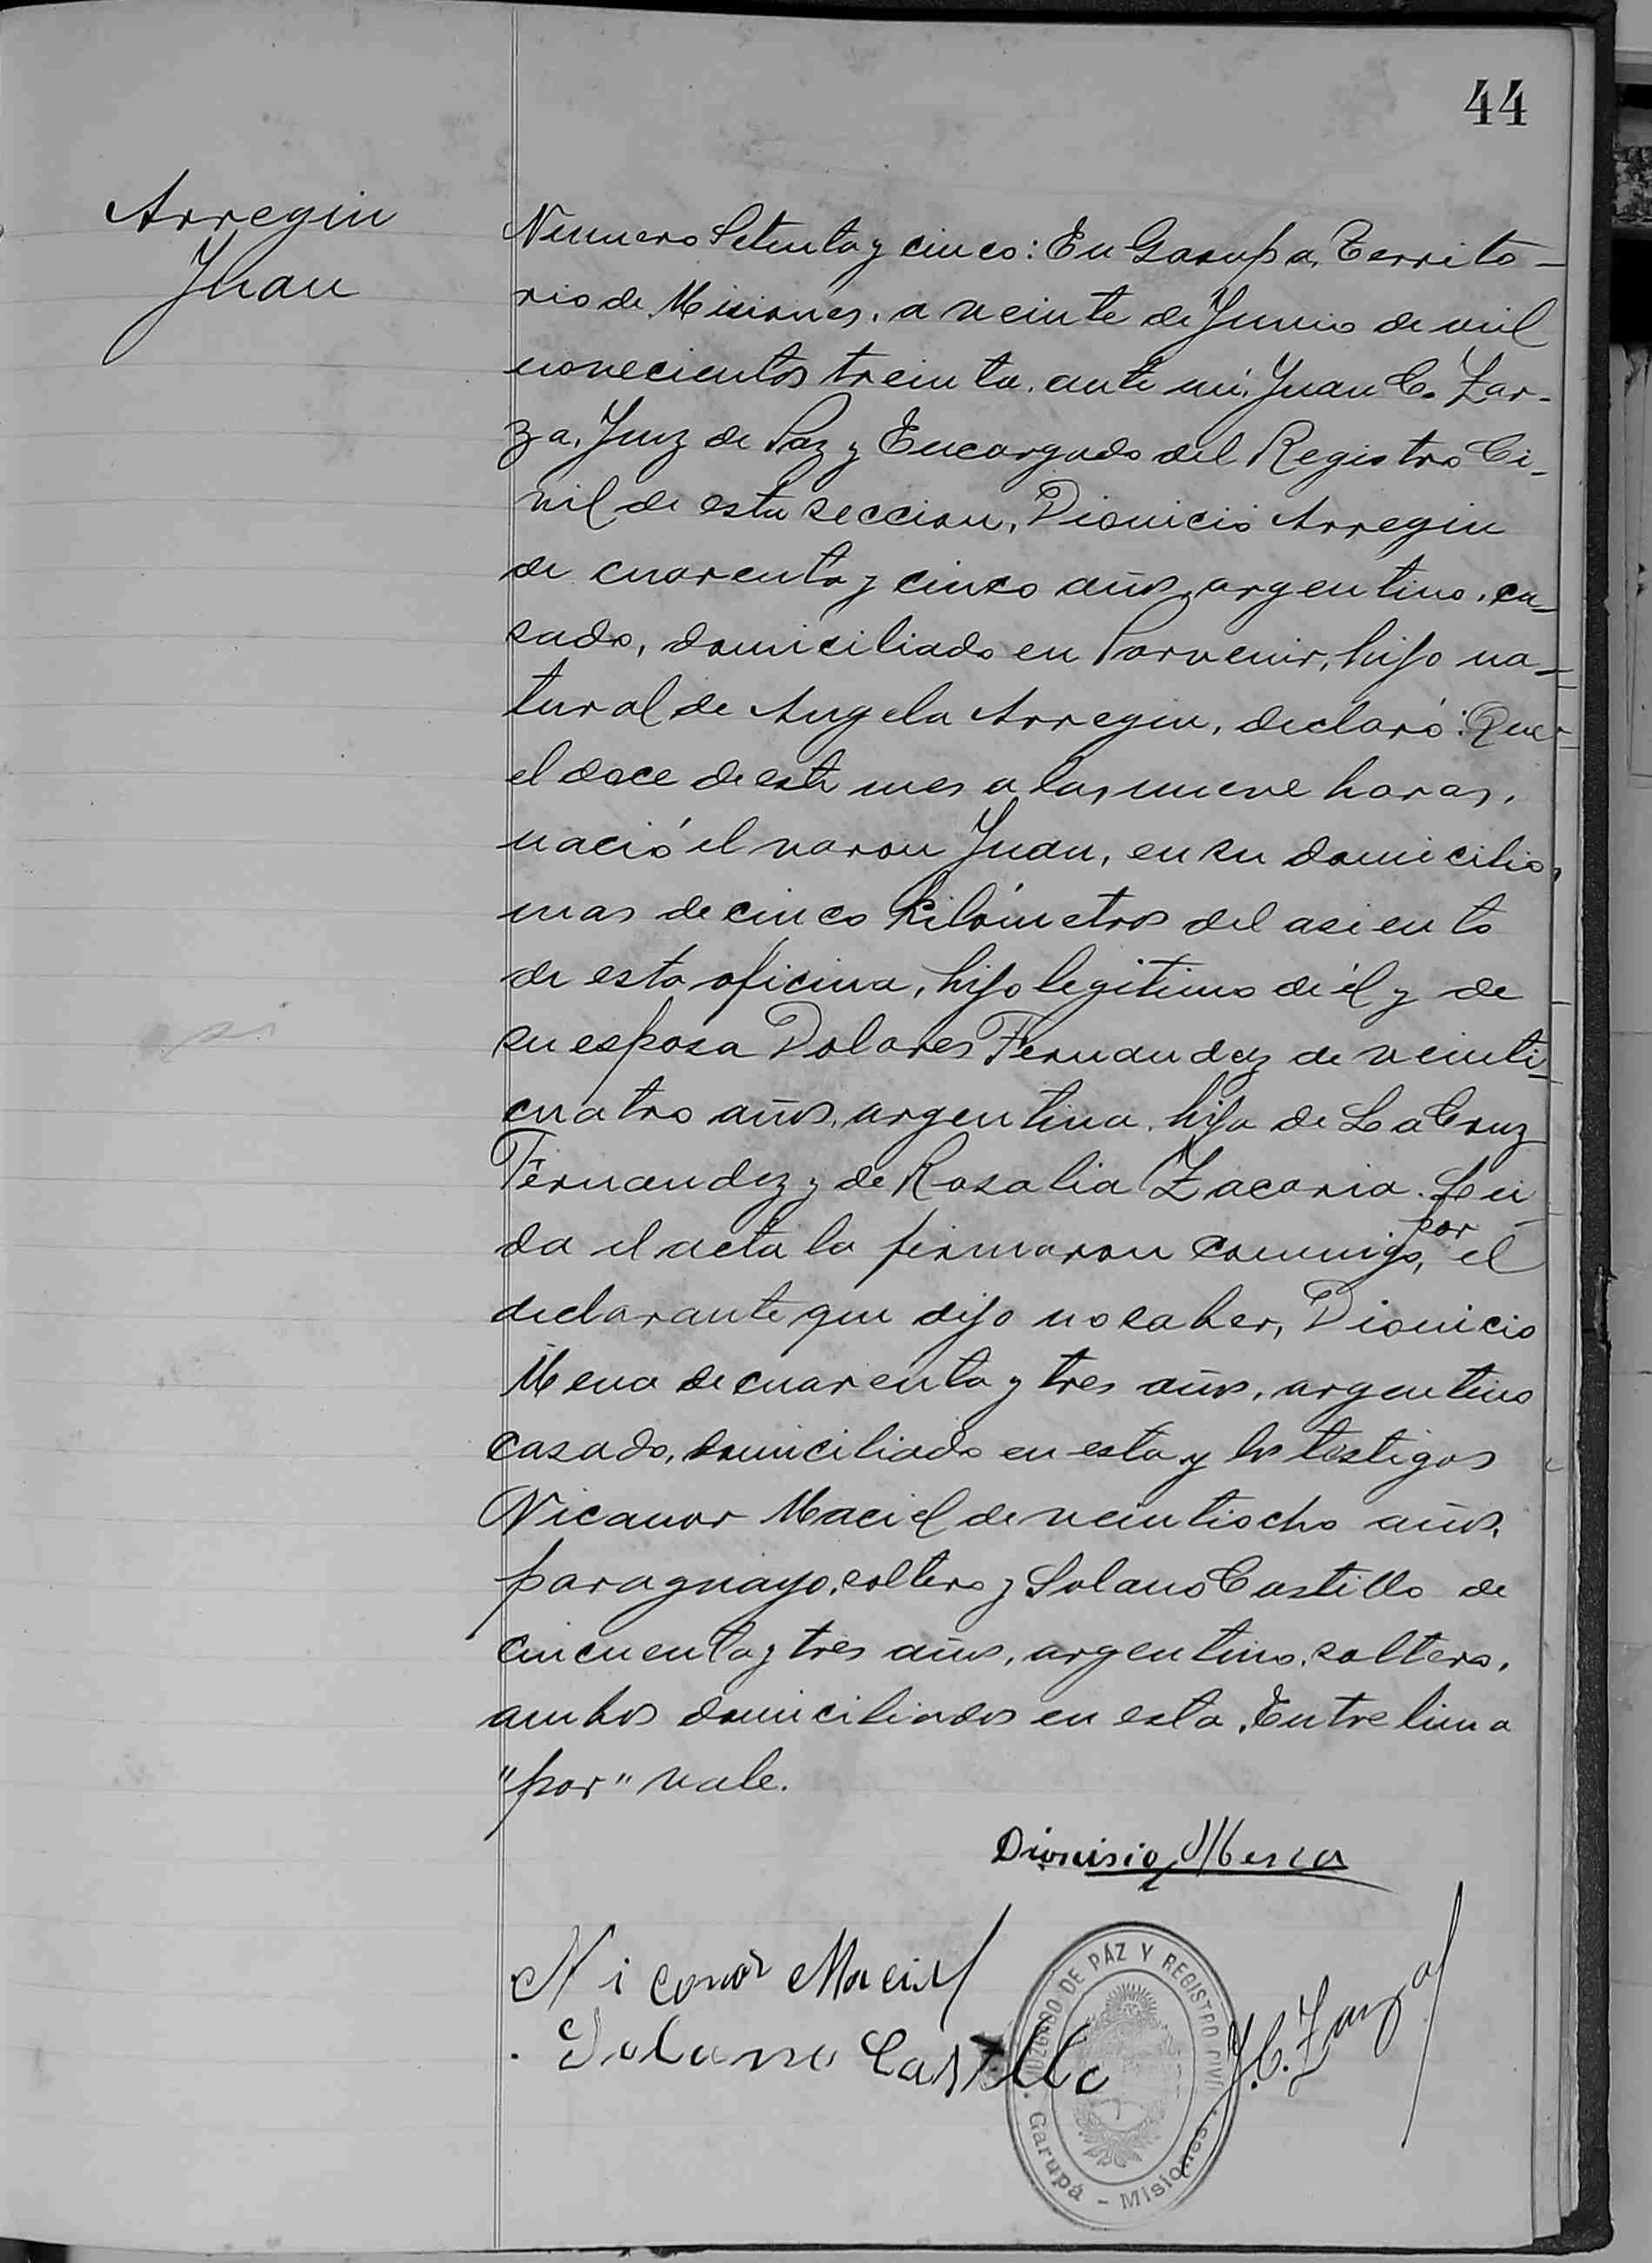 44
Arregin
Juan
Numero Setenta y cinco: En Garupa, Territo-
rio de Misiones, a veinte de Junio de mil
novecientos treinta, ante mi, Juan C. Zar-
za, Juez de Paz y Encargado del Registro Ci-
vil de esta seccion, Dionicio Arregin
de cuarenta y cinco años, argentino, ca-
sado, domiciliado en Porvenir, hijo na-
tural de Angela Arregin, declaró: Que
el doce de este mes a las nueve horas,
nació el varon Juan, en su domicilio,
mas de cinco kilómetros del asiento
de esta oficina, hijo legitimo de él y de
su esposa Dolores Fernandez de veinti-
cuatro años, argentina, hija de La Cruz
Fernandez y de Rosalia Zacaria. Lei-
da el acta la firmaron conmigo, por el
declarante que dijo no saber, Dionicio
Mena de cuarenta y tres años, argentino
casado, domiciliado en esta y los testigos
Nicanor Maciel de veintiocho años,
paraguayo, soltero y Solano Castillo de
cincuenta y tres años, argentino, soltero,
ambos domiciliados en esta. Entre linea
"por" vale.
Dionisio Mena
Nicanor Maciel
Solano Castillo
J.C. Zarza
JUZGADO DE PAZ Y REGISTRO CIVIL
Garupá - Misiones